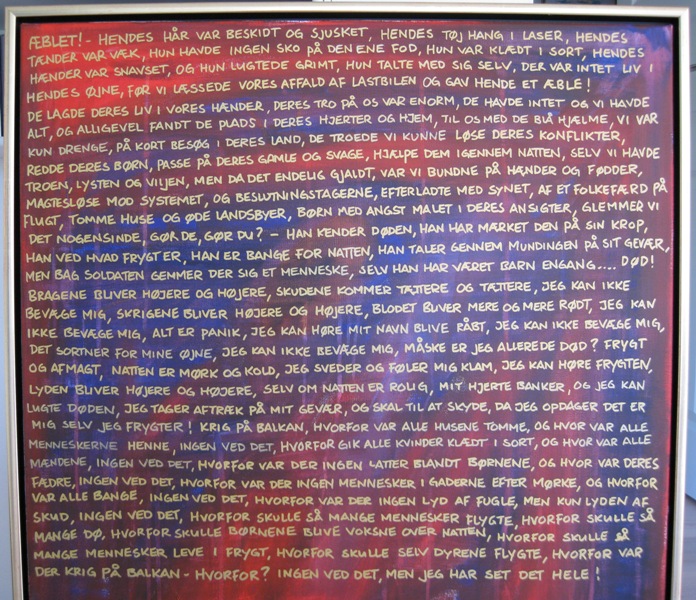 ÆBLET! - HENDES HÅR VAR BESKIDT OG SJUSKET, HENDES TØJ HANG I LASER, HENDES
TÆNDER VAR VÆK, HUN HAVDE INGEN SKO PÅ DEN ENE FOD, HUN VAR KLÆDT I SORT, HENDES
HÆNDER VAR SNAVSET, OG HUN LUGTEDE GRIMT, HUN TALTE MED SIG SELV, DER VAR INTET LIV I
HENDES ØJNE, FØR VI LÆSSEDE VORES AFFALD AF LASTBILEN OG GAV HENDE ET ÆBLE!
DE LAGDE DERES LIV I VORES HÆNDER, DERES TRO PÅ OS VAR ENORM, DE HAVDE INTET OG VI HAVDE
ALT, OG ALLIGEVEL FANDT DE PLADS I DERES HJERTER OG HJEM, TIL OS MED DE BLÅ HJÆLME, VI VAR
KUN DRENGE, PÅ KORT BESØG I DERES LAND, DE TROEDE VI KUNNE LØSE DERES KONFLIKTER,
REDDE DERES BØRN, PASSE PÅ DERES GAMLE OG SVAGE, HJÆLPE DEM IGENNEM NATTEN, SELV VI HAVDE
TROEN, LYSTEN OG VILJEN, MEN DA DET ENDELIG GJALDT, VAR VI BUNDNE PÅ HÆNDER OG FØDDER,
MAGTESLØSE MOD SYSTEMET, OG BESLUTNINGSTAGERNE, EFTERLADTE MED SYNET, AF ET FOLKEFÆRD PÅ
FLUGT, TOMME HUSE OG ØDE LANDSBYER, BØRN MED ANGST MALET I DERES ANSIGTER, GLEMMER VI
DET NOGENSINDE, GØR DE, GØR DU? - HAN KENDER DØDEN, HAN HAR MÆRKET DEN PÅ SIN KROP,
HAN VED HVAD FRYGT ER, HAN ER BANGE FOR NATTEN, HAN TALER GENNEM MUNDINGEN PÅ SIT GEVÆR,
MEN BAG SOLDATEN GEMMER DER SIG ET MENNESKE, SELV HAN HAR VÆRET BARN ENGANG.... DØD!
BRAGENE BLIVER HØJERE OG HØJERE, SKUDENE KOMMER TÆTTERE OG TÆTTERE, JEG KAN IKKE
BEVÆGE MIG, SKRIGENE BLIVER HØJERE OG HØJERE, BLODET BLIVER MERE OG MERE RØDT, JEG KAN
IKKE BEVÆGE MIG, ALT ER PANIK, JEG KAN HØRE MIT NAVN BLIVE RÅBT, JEG KAN IKKE BEVÆGE MIG,
DET SORTNER FOR MINE ØJNE, JEG KAN IKKE BEVÆGE MIG, MÅSKE ER JEG ALLEREDE DØD? FRYGT
OG AFMAGT, NATTEN ER MØRK OG KOLD, JEG SVEDER OG FØLER MIG KLAM, JEG KAN HØRE FRYGTEN,
LYDEN BLIVER HØJERE OG HØJERE, SELV OM NATTEN ER ROLIG, MIT HJERTE BANKER, OG JEG KAN
LUGTE DØDEN, JEG TAGER AFTRÆK PÅ MIT GEVÆR, OG SKAL TIL AT SKYDE, DA JEG OPDAGER DET ER
MIG SELV JEG FRYGTER! KRIG PÅ BALKAN, HVORFOR VAR ALLE HUSENE TOMME, OG HVOR VAR ALLE
MENNESKERNE HENNE, INGEN VED DET, HVORFOR GIK ALLE KVINDER KLÆDT I SORT, OG HVOR VAR ALLE
MÆNDENE, INGEN VED DET, HVORFOR VAR DER INGEN LATTER BLANDT BØRNENE, OG HVOR VAR DERES
FÆDRE, INGEN VED DET, HVORFOR VAR DER INGEN MENNESKER I GADERNE EFTER MØRKE, OG HVORFOR
VAR ALLE BANGE, INGEN VED DET, HVORFOR VAR DER INGEN LYD AF FUGLE, MEN KUN LYDEN AF
SKUD, INGEN VED DET, HVORFOR SKULLE SÅ MANGE MENNESKER FLYGTE, HVORFOR SKULLE SÅ
MANGE DØ, HVORFOR SKULLE BØRNENE BLIVE VOKSNE OVER NATTEN, HVORFOR SKULLE SÅ
MANGE MENNESKER LEVE I FRYGT, HVORFOR SKULLE SELV DYRENE FLYGTE, HVORFOR VAR
DER KRIG PÅ BALKAN - HVORFOR? INGEN VED DET, MEN JEG HAR SET DET HELE!